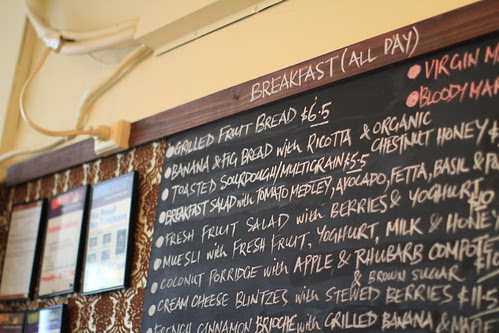 BREAKFAST (ALL DAY)
GRILLED FRUIT BREAD $6.5
BANANA & FIG BREAD with RICOTTA & ORGANIC
CHESTNUT HONEY
TOASTED SOURDOUGH/MULTIGRAIN $5.5
BREAKFAST SALAD with TOMATO MEDLEY, AVOCADO, FETTA, BASIL &
FRESH FRUIT SALAD with BERRIES & YOGHURT
MUESLI with FRESH FRUIT, YOGHURT, MILK & HONEY
COCONUT PORRIDGE with APPLE & RHUBARB COMPOTE
& BROWN SUGAR
CREAM CHEESE BLINTZES with STEWED BERRIES $11.5
FRENCH CINNAMON BRIOCHE with GRILLED BANANA &
VIRGIN
BLOODY
No Proof
No Purchase